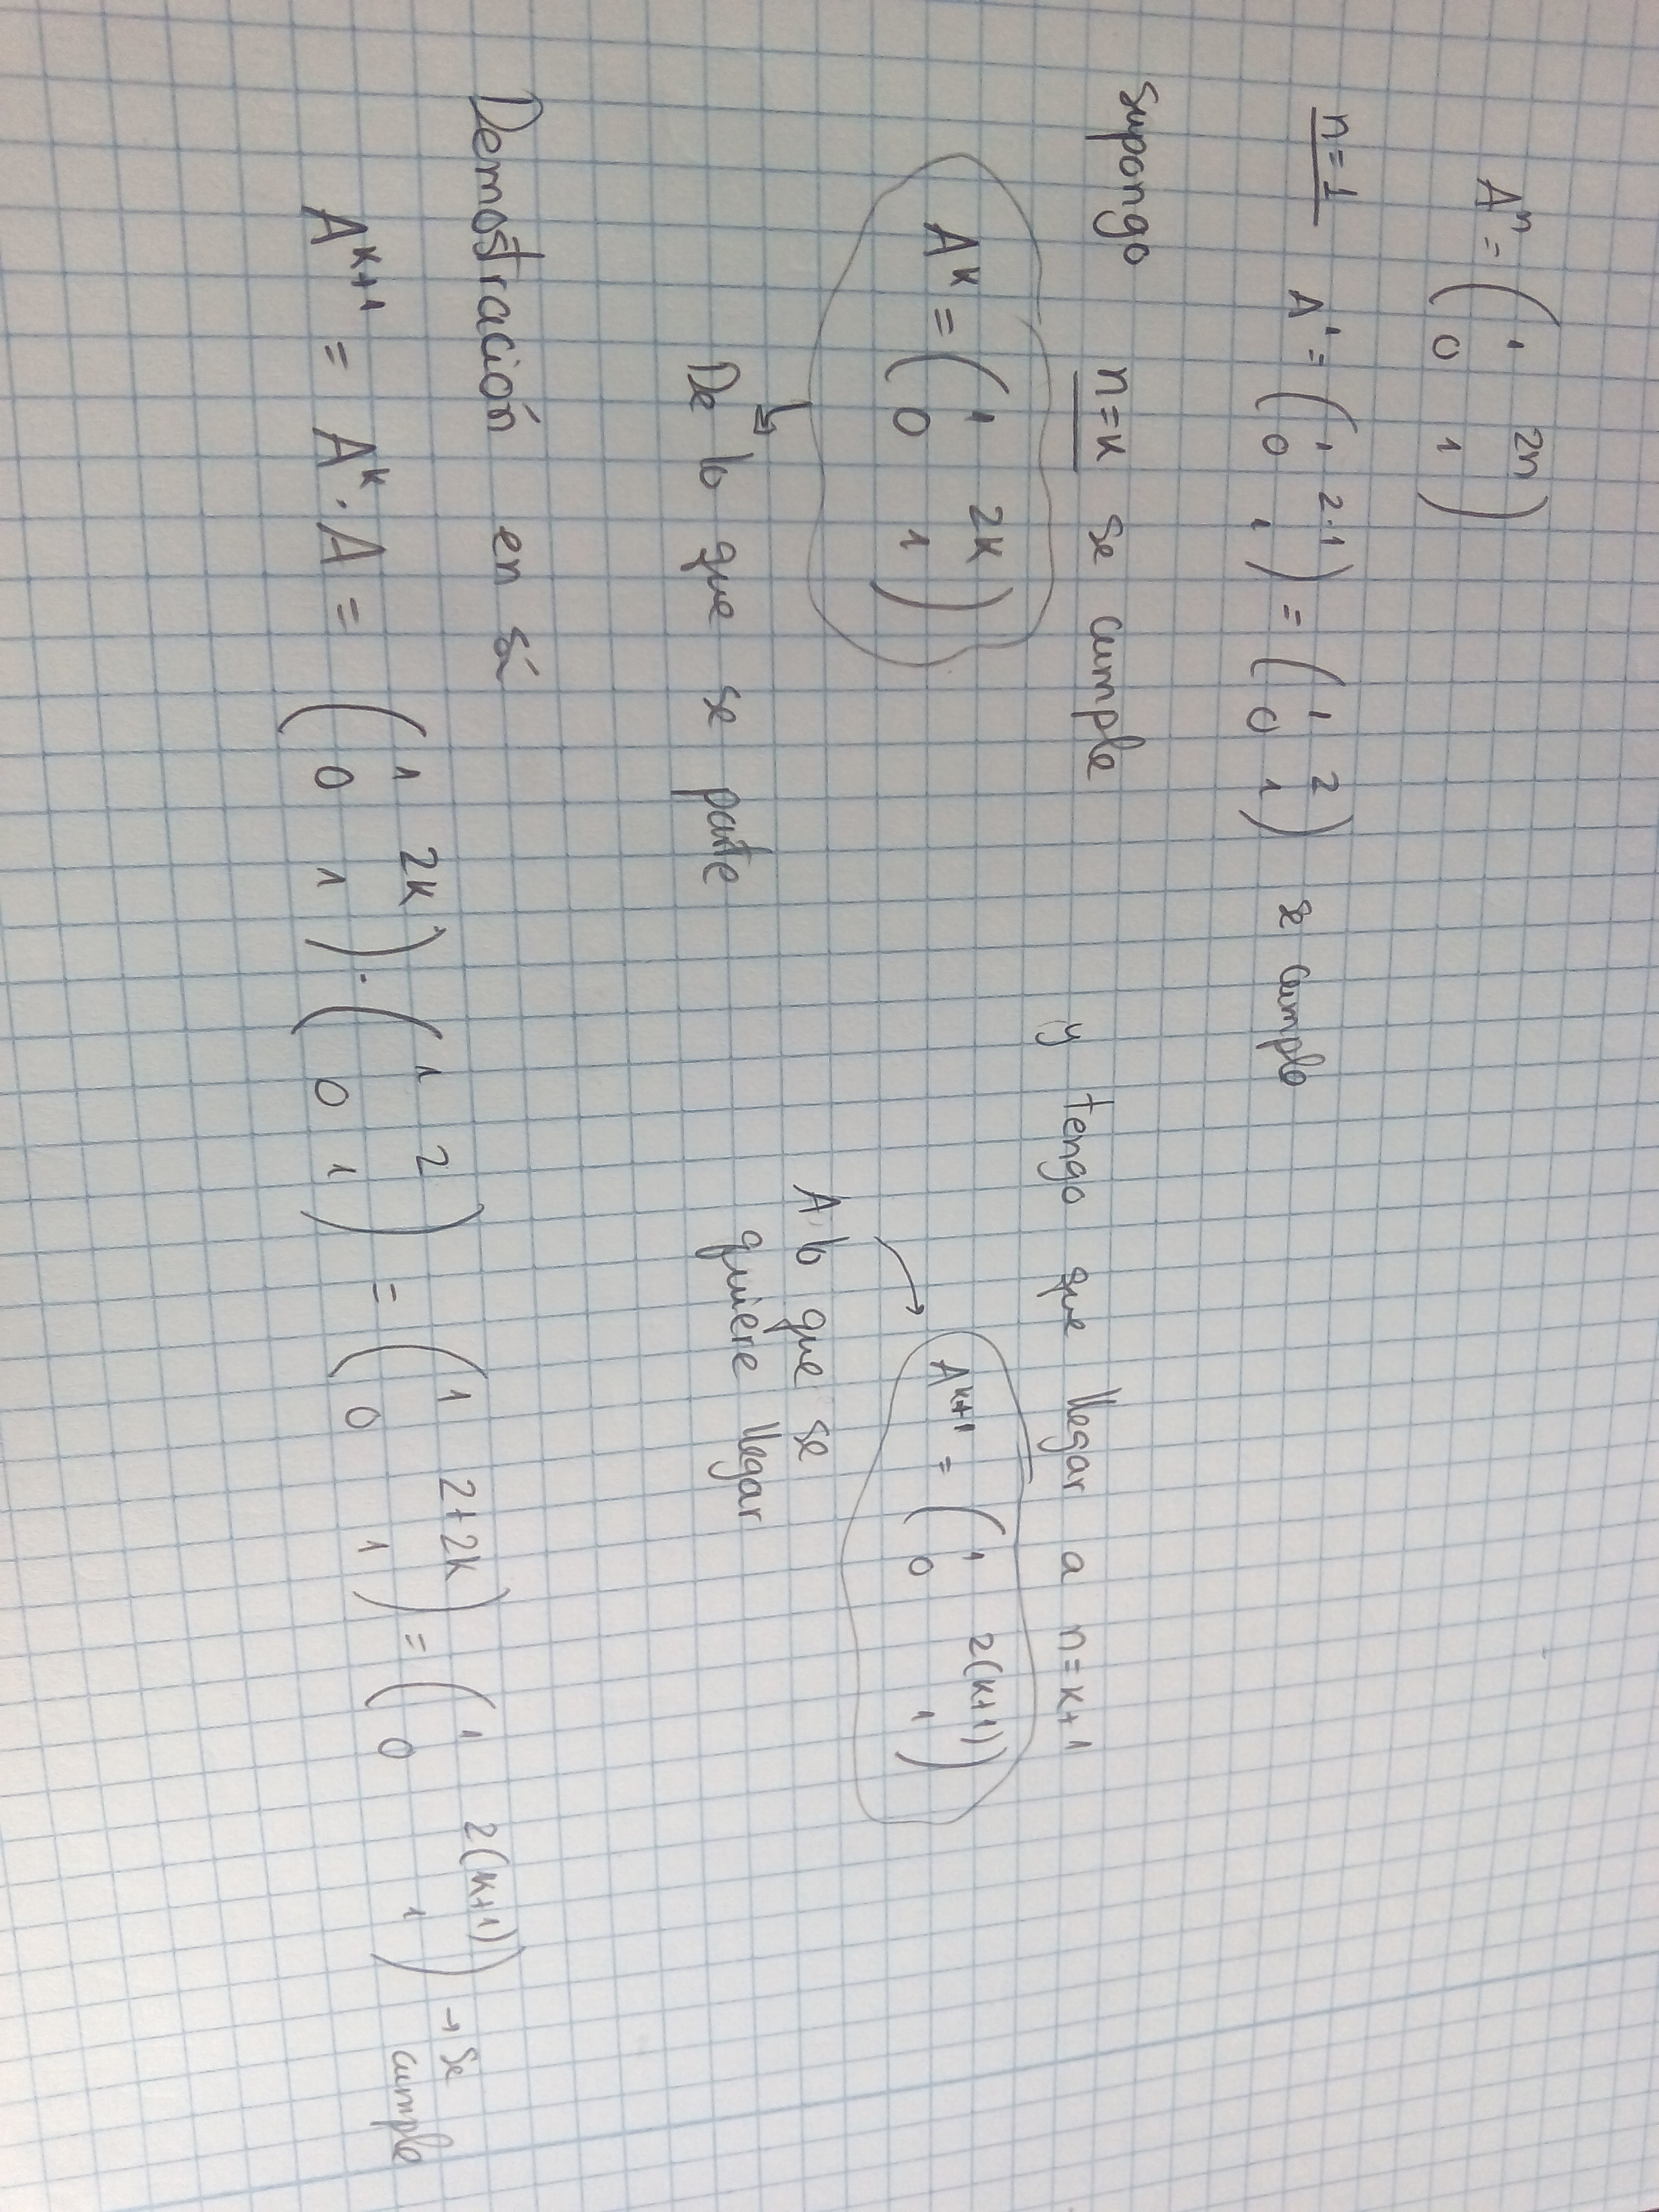 Aⁿ = ( 1 2n
0 1 )
n=1 A¹ = ( 1 2·1
0 1 ) = ( 1 2
0 1 ) se cumple
Supongo n=k se cumple y tengo que llegar a n=k+1
Aᵏ = ( 1 2k
0 1 )
Aᵏ⁺¹ = ( 1 2(k+1)
0 1 )
De lo que se parte
A lo que se
quiere llegar
Demostración en sí
Aᵏ⁺¹ = Aᵏ · A = ( 1 2k
0 1 ) · ( 1 2
0 1 ) = ( 1 2+2k
0 1 ) = ( 1 2(k+1)
0 1 ) → Se
cumple